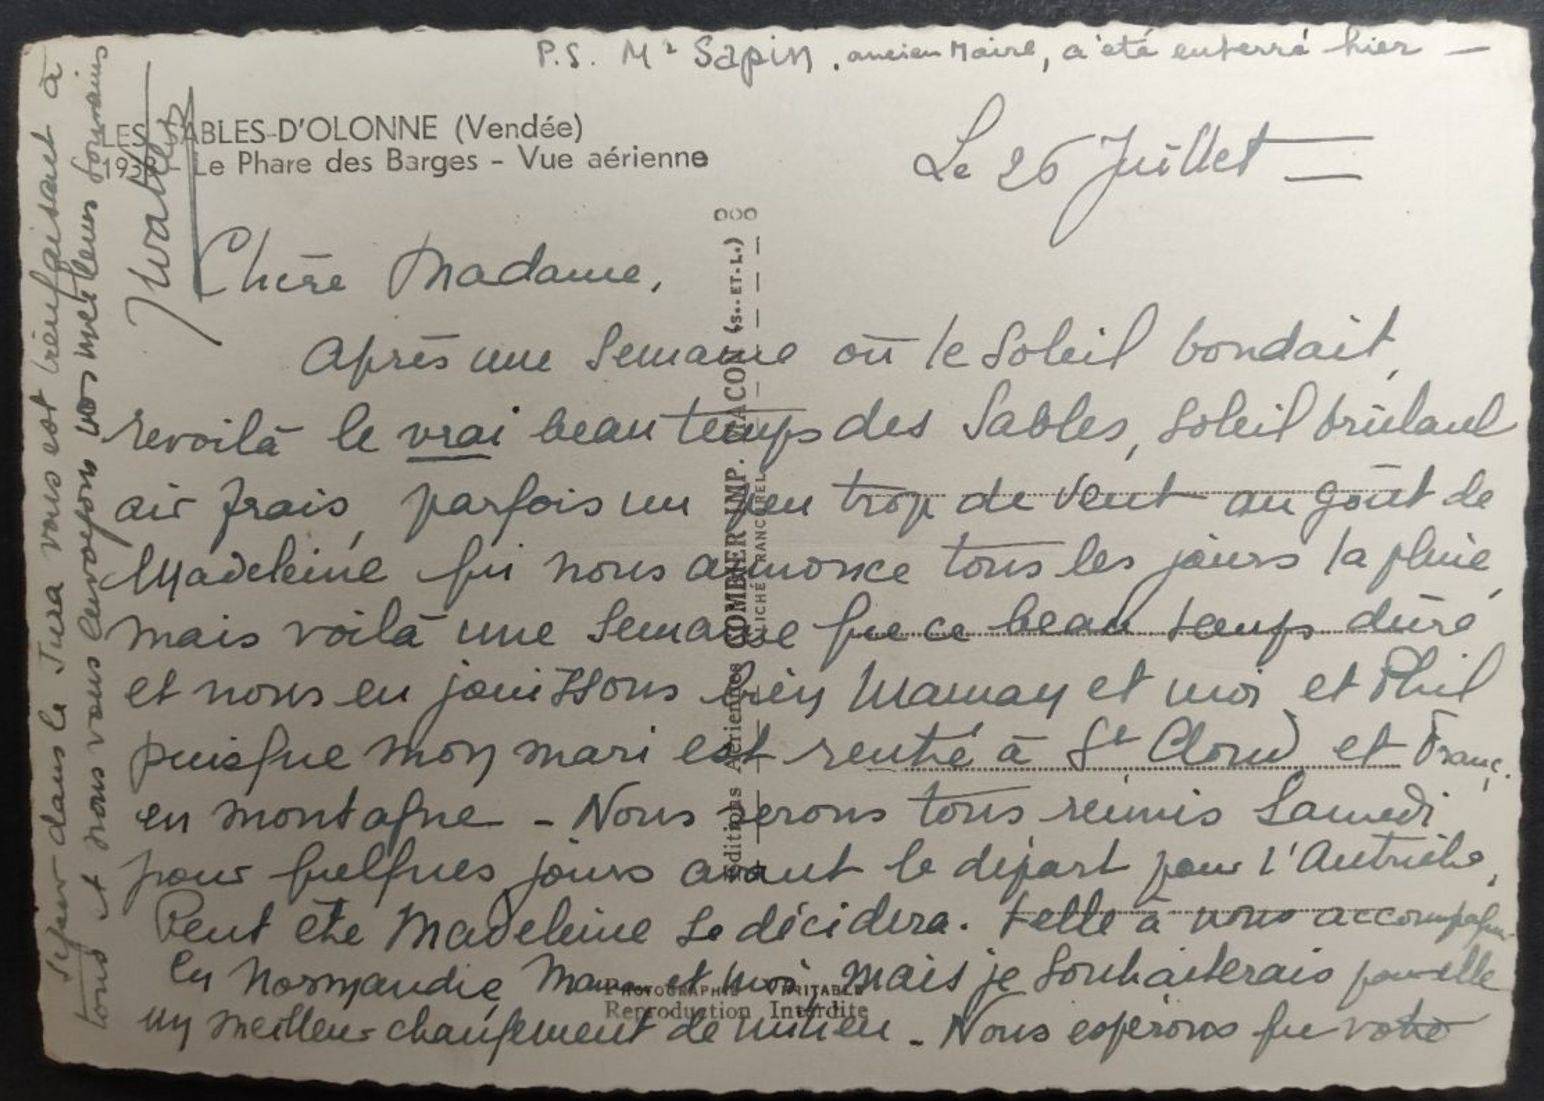 P.S. Mr Sapin, ancien Maire, a été enterré hier —
LES SABLES-D'OLONNE (Vendée)
Le Phare des Barges - Vue aérienne
Le 26 Juillet —
Chère Madame,
Après une semaine où le soleil boudait,
revoilà le vrai beau temps des Sables, soleil brûlant
air frais, parfois un peu trop de vent au goût de
Madeleine qui nous annonce tous les jours la pluie,
mais voilà une semaine que ce beau temps dure
et nous en jouissons bien Maman et moi et Phil
puisque mon mari est rentré à St Cloud et Franç.
en montagne - Nous serons tous réunis Samedi
pour quelques jours avant le départ pour l'Autriche,
Peut être Madeleine se décidera-t-elle à nous accompagner
en Normandie Maman et moi, mais je souhaiterais pour elle
un meilleur changement de milieu - Nous espérons que votre
séjour dans le Jura vous est bienfaisant à
tous et nous vous envoyons nos meilleurs souvenirs
Editions Aériennes COMBIER IMP. MACON (S.-ET-L.)
CLICHÉ RANCUREL
PHOTOGRAPHIE VÉRITABLE
Reproduction Interdite